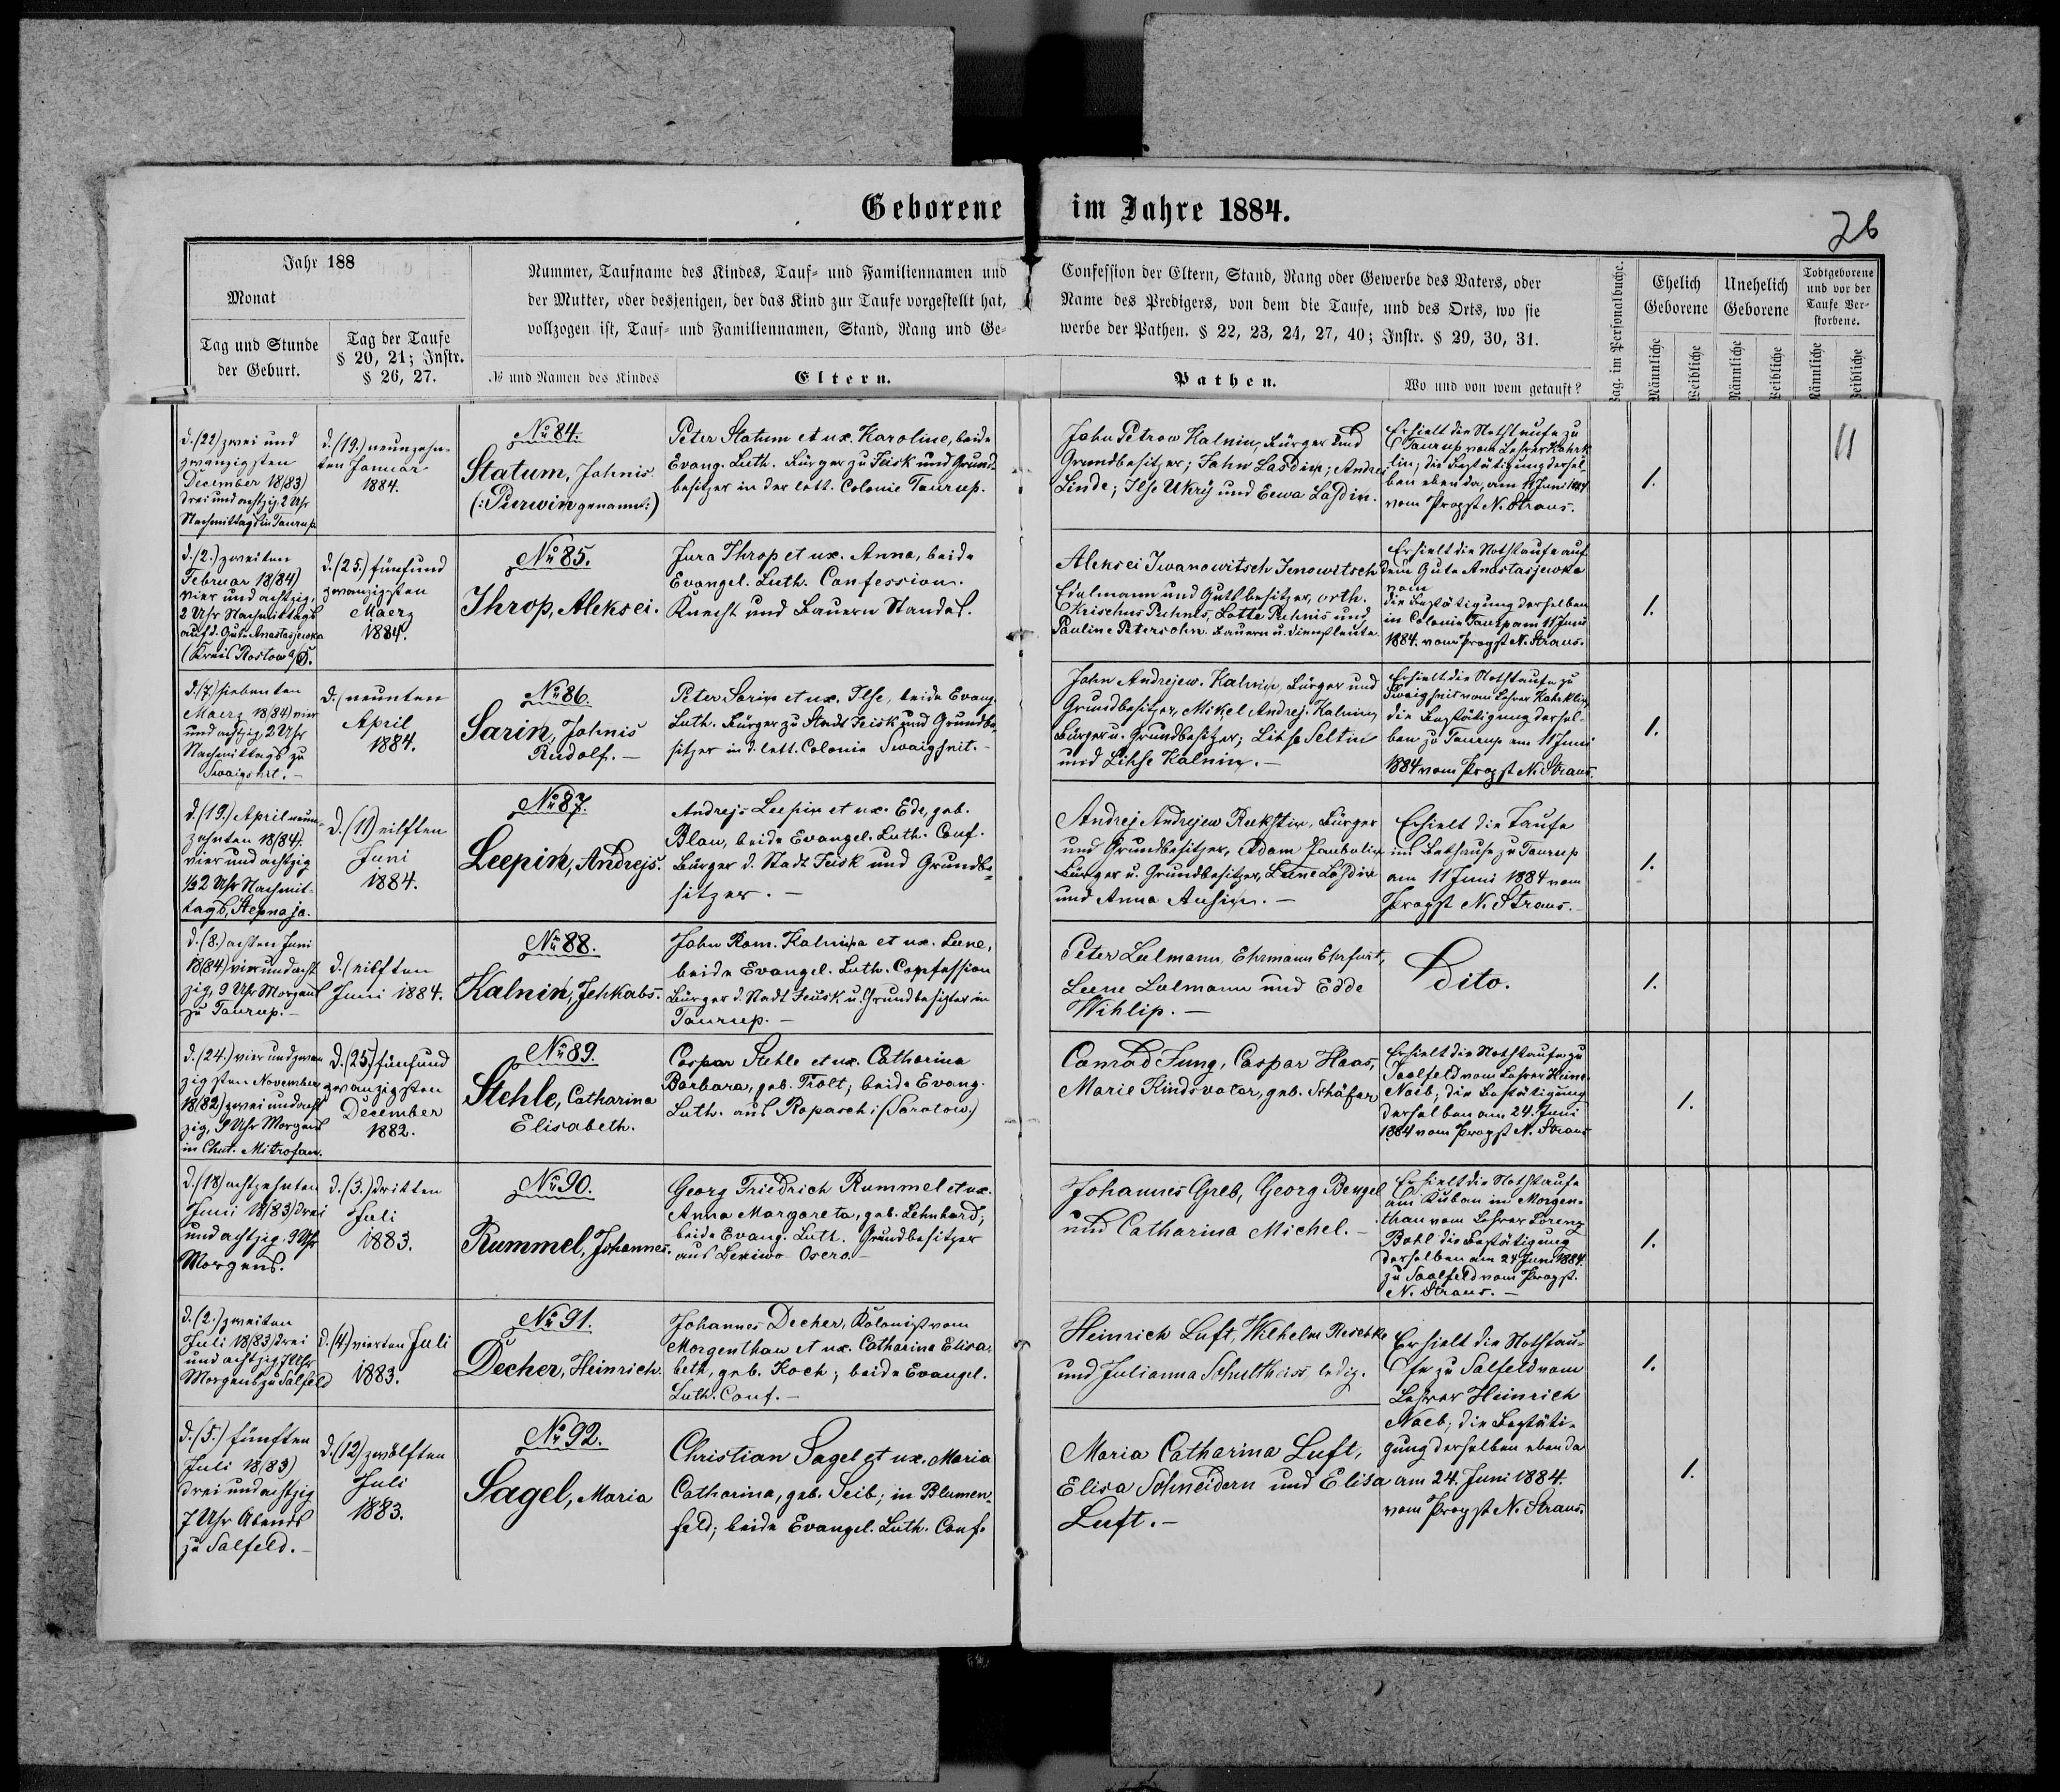 Geborene im Jahre 1884.
26
Jahr 188
Monat
Tag und Stunde
der Geburt.
Tag der Taufe
§ 20, 21; Instr.
§ 26, 27.
Nummer, Taufname des Kindes, Tauf- und Familiennamen und
der Mutter, oder desjenigen, der das Kind zur Taufe vorgestellt hat,
vollzogen ist, Tauf- und Familiennamen, Stand, Rang und Ge-
№ und Namen des Kindes
Eltern.
Confession der Eltern, Stand, Rang oder Gewerbe des Vaters, oder
Name des Predigers, von dem die Taufe, und des Orts, wo sie
werbe der Pathen. § 22, 23, 24, 27, 40; Instr. § 29, 30, 31.
Pathen.
Wo und von wem getauft?
Pag. im Personalbuche.
Ehelich
Geborene
Unehelich
Geborene
Todtgeborene
und vor der
Taufe Ver-
storbene.
Männliche
Weibliche
Männliche
Weibliche
Männliche
Weibliche
d. (22) zwei und
zwanzigsten
December 18(83)
drei und achtzig 2 Uhr
Nachmittags in Taurup.
d. (19.) neunzehn-
ten Januar
1884.
№ 84.
Statum, Jahnis
(: Purwin genannt:)
Peter Statum et ux. Karoline, beide
Evang. Luth. Bürger zu Jeisk und Grund-
besitzer in der lett. Colonie Taurup.
Jahn Petrow Kalnin, Bürger und
Grundbesitzer; Jahn Lasdin; Andrei
Linde; Ilse Ukrÿ und Eewa Lasdin.
Erhielt die Nothtaufe zu
Taurup vom Lehrer Kahrk-
lin; die Bestätigung dersel-
ben ebenda, am 11 Juni 1884
vom Propst N. Straus.
1.
11
d. (2.) zweiten
Februar 18(84)
vier und achtzig,
2 Uhr Nachmittags
auf d. Gute Anastasjewka
(Kreis Rostow a/D.
d. (25.) fünfund
zwanzigsten
Maerz
1884.
№ 85.
Throp, Aleksei.
Jura Throp et ux. Anna, beide
Evangel. Luth. Confession.
Knecht und Bauern Standes.
Aleksei Iwanowitsch Jenowitsch
Edelmann und Gutsbesitzer, orth.
Krischus Puhnis, Lotte Puhnis und
Pauline Petersohn. Bauern u. Dienstleute.
Erhielt die Nothtaufe auf
dem Gute Anastasjewka
vom
die Bestätigung derselben
in Colonie Taurup am 11 Juni
1884. vom Propst N. Straus.
1.
d. (7.) siebenten
Maerz 18(84) vier
und achtzig, 2 Uhr
Nachmittags zu
Swaigsnit. –
d. (neunten
April
1884.
№ 86.
Sarin, Jahnis
Rudolf. –
Peter Sarin et ux. Ilse, beide Evang.
Luth. Bürger zu Stadt Jeisk und Grundbe-
sitzer in d. lett. Colonie Swaigsnit. –
Jahn Andrejew. Kalnin, Bürger und
Grundbesitzer, Mikel Andrej. Kalnin,
Bürger u. Grundbesitzer; Lihse Seltin
und Lihse Kalnin. –
Erhielt die Nothtaufe zu
Swaigsnit vom Lehrer Kahrklin,
die Bestätigung dersel-
ben zu Taurup am 11 Juni
1884 vom Propst N. Straus.
1.
d. (19.) April neun-
zehnten 18(84).
vier und achtzig
½ 2 Uhr Nachmit-
tags, Stepnaja.
d. (11) eilften
Juni
1884.
№ 87.
Leepin, Andrejs.
Andrejs Leepin et ux. Ede, geb.
Blau, beide Evangel. Luth. Conf.
Bürger d. Stadt Jeisk und Grundbe-
sitzer. –
Andrej Andrejew Rukstin, Bürger
und Grundbesitzer, Adam
Bürger u. Grundbesitzer, Leene Lasdin
und Anna Ausin. –
Erhielt die Taufe
im Bethause zu Taurup
am 11 Juni 1884 vom
Propst N. Straus. –
1.
d. (8.) achten Juni
18(84) vier und acht
zig, 9 Uhr Morgens
zu Taurup. –
d. (eilften
Juni 1884.
№ 88.
Kalnin, Jehkabs.
Jahn Rom. Kalnin et ux. Leene,
beide Evangel. Luth. Confession
Bürger d. Stadt Jeisk u. Grundbesitzer in
Taurup. –
Peter Leelmann, Ehrmann Ehrfurt,
Leene Lalmann und Edde
Wihlip. –
Dito.
1.
d. (24.) vier und zwan
zigsten November
18(82) zwei und acht
zig, 9 Uhr Morgens
in Chut. Mitrofan.
d. (25) fünfund
zwanzigsten
December
1882.
№ 89.
Stehle, Catharina
Elisabeth.
Caspar Stehle et ux. Catharina
Barbara, geb. Tiolt; beide Evang.
Luth. aus Ropasch; (Saratow.)
Conrad Jung, Caspar Haas,
Marie Kindsvater, geb. Schäfer
Erhielt die Nothtaufe zu
Saalfeld vom Lehrer Heinr.
Naeb; die Bestätigung
derselben am 24. Juni
1884 vom Propst N. Straus
1.
d. (18) achtzehnten
Juni 18(83) drei
und achtzig, 9 Uhr
Morgens.
d. (3.) dritten
Juli
1883.
№ 90.
Rummel, Johannes.
Georg Friedrich Rummel et ux.
Anna Margareta, geb. Lehnhard;
beide Evang. Luth. Grundbesitzer
aus Osero. –
Johannes Greb, Georg Bengel
und Catharina Michel. –
Erhielt die Nothtaufe
am Kuban im Morgen-
thau vom Lehrer Lorenz
Bohl die Bestätigung
derselben am 24 Juni 1884.
zu Saalfeld vom Propst.
N. Straus. –
1.
d. (2.) zweiten
Juli 18(83) drei
und achtzig, 7 Uhr
Morgens zu Salfeld
d. (4) vierten Juli
1883.
№ 91.
Decher, Heinrich.
Johannes Decher, Kolonist vom
Morgenthau et ux. Catharina Elisa-
beth, geb. Koch; beide Evangel.
Luth. Conf. –
Heinrich Luft, Wilhelm Reschke
und Julianna Schultheiss, ledig.
Erhielt die Nothtau-
fe zu Salfeld vom
Lehrer Heinrich
Naeb; die Bestäti-
gung derselben ebenda
am 24. Juni 1884.
vom Propst N. Straus.
1.
d. (5.) fünften
Juli 18(83)
drei und achtzig
7 Uhr Abends
zu Salfeld. –
d. (12) zwölften
Juli
1883.
№ 92.
Sagel, Maria
Christian Sagel et ux. Maria
Catharina, geb. Seib; in Blumen-
feld; beide Evangel. Luth. Conf.
Maria Catharina Luft,
Elisa Schneidern und Elisa
Luft. –
1.